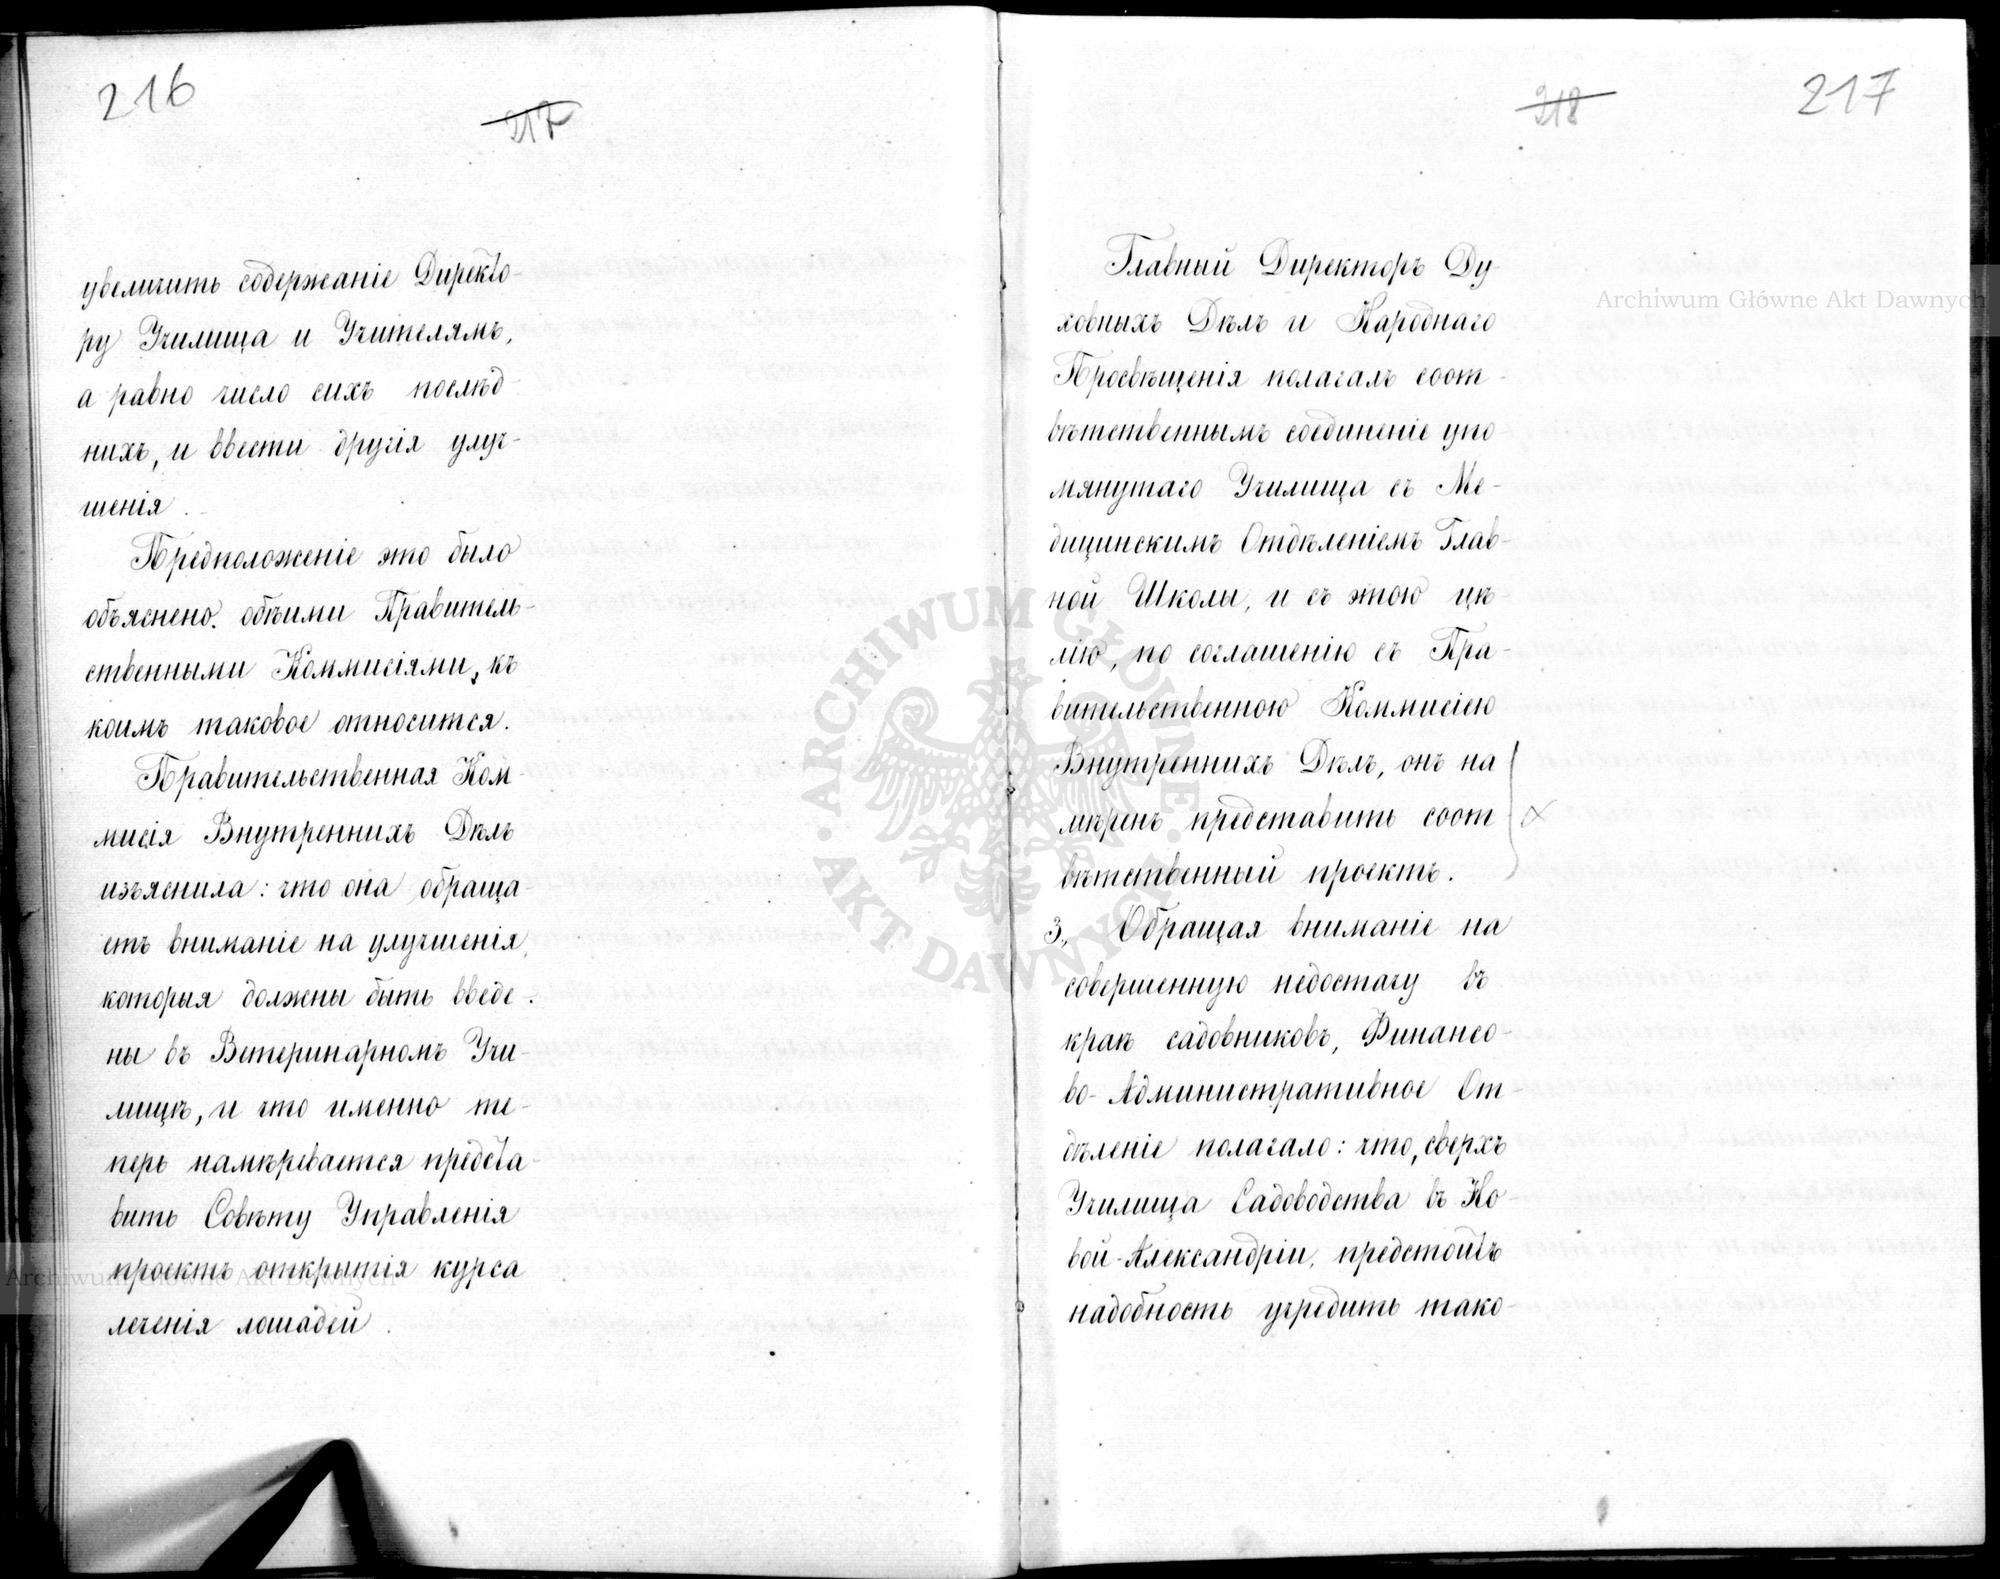 216
217
увеличить содержаніе Директо-
ру Училища и Учителямъ,
а равно число сихъ послѣд-
нихъ, и ввести другія улуч-
шенія.
Предположеніе это было
объяснено обѣими Правитель-
ственными Коммисіями, къ
коимъ таковое относится.
Правительственная Ком-
мисія Внутреннихъ Дѣлъ
изъяснила: что она обраща-
етъ вниманіе на улучшенія,
которыя должны быть введе-
ны въ Ветеринарномъ Учи-
лищѣ, и что именно те-
перь намѣревается предста-
вить Совѣту Управленія
проектъ открытія курса
леченія лошадей.
218
217
Главный Директоръ Ду-
ховныхъ Дѣлъ и Народнаго
Просвѣщенія полагалъ соот-
вѣтственнымъ соединеніе упо
мянутаго Училища съ Ме-
дицинскимъ Отдѣленіемъ Глав-
ной Школы, и съ этою цѣ
лію, по соглашенію съ Пра-
вительственною Коммисіею
Внутреннихъ Дѣлъ, онъ на
мѣренъ представить соот-
вѣтственный проектъ.
3, Обращая вниманіе на
совершенную недостачу въ
краѣ садовниковъ, Финансо-
во-Административное От-
дѣленіе полагало: что, сверхъ
Училища Садоводства въ Но-
вой-Александріи, предстоитъ
надобность учредить тако-
Archiwum Główne Akt Dawnych
Archiwum Główne Akt Dawnych
ARCHIWUM GŁÓWNE AKT DAWNYCH